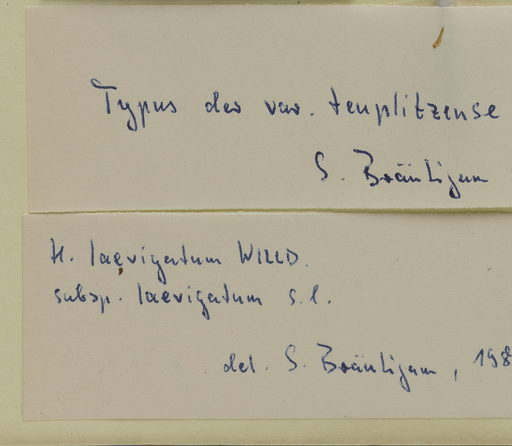 Typus der var. teuplitzense
S. Bräutigam
H. laevigatum WILLD.
subsp. laevigatum s.l.
det. S. Bräutigam, 198